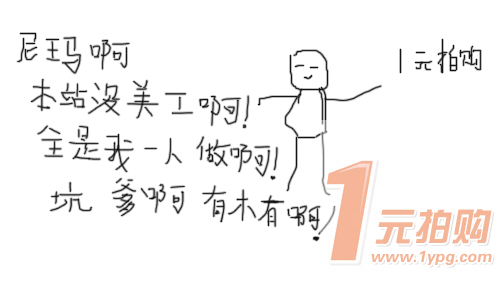 尼玛啊
1元拍购
本站没美工啊!
全是我一人做啊!
坑爹啊有木有啊!
1元拍购
www.1ypg.com